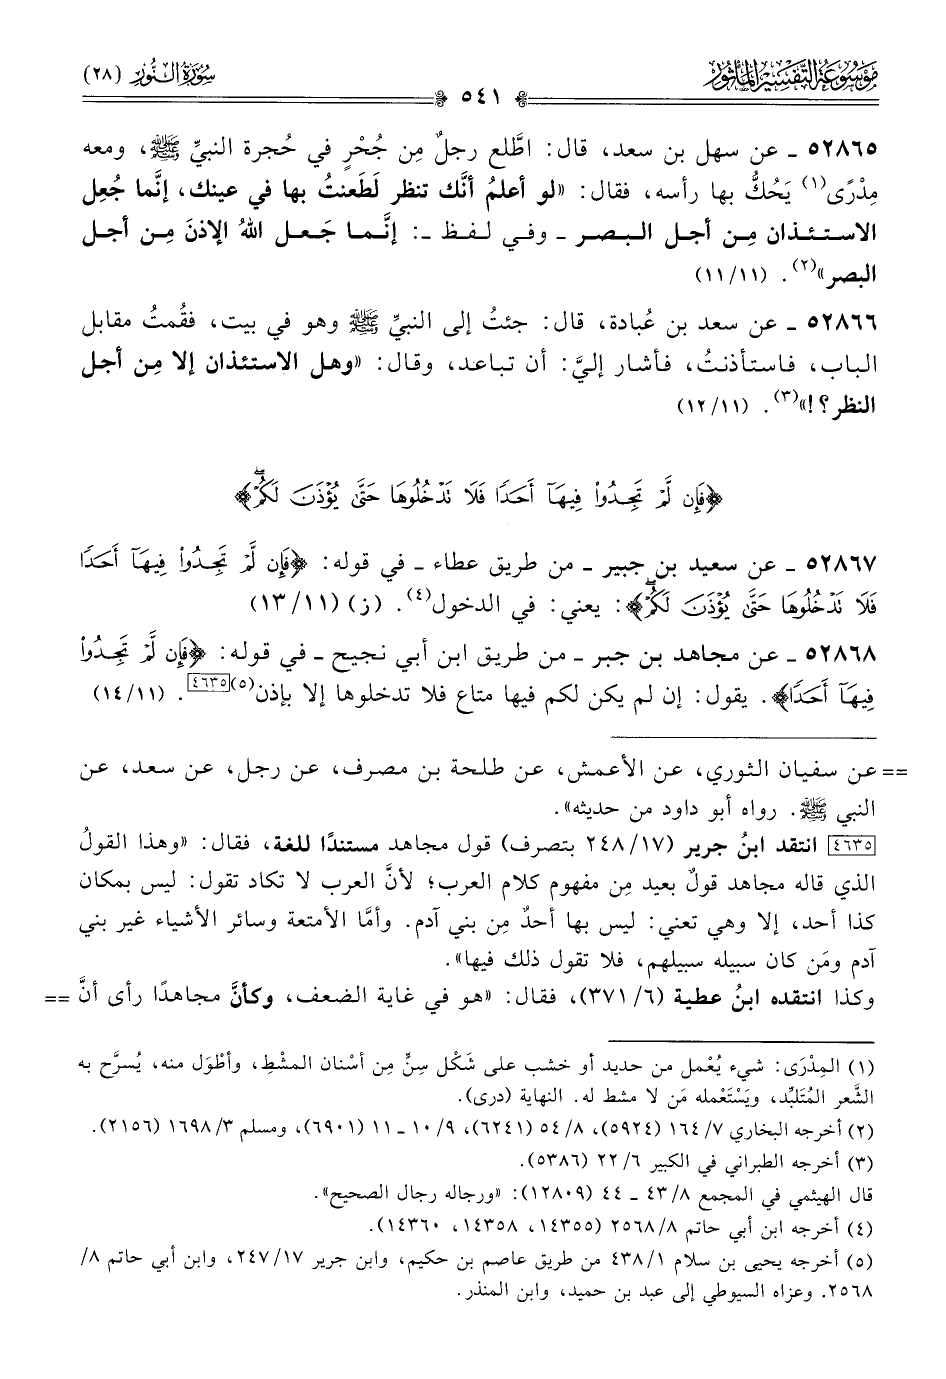 مَوْسُوعَة التَّفْسِير المَأثُور
سُورَةُ النُّور (٢٨)
٥٤١
٥٢٨٦٥ ـ عن سهل بن سعد، قال: اطَّلع رجلٌ مِن جُحْرٍ في حُجرة النبيِّ ﷺ، ومعه
مِدْرًى(١) يَحُكُّ بها رأسه، فقال: «لو أعلمُ أنَّك تنظر لَطَعنتُ بها في عينك، إنَّما جُعِل
الاستئذان مِن أجل البصر ـ وفي لفظ ـ: إنَّما جَعل اللهُ الإذنَ مِن أجل
البصر»(٢). (١١/١١)
٥٢٨٦٦ ـ عن سعد بن عُبادة، قال: جئتُ إلى النبيِّ ﷺ وهو في بيت، فقُمتُ مقابل
الباب، فاستأذنتُ، فأشار إليَّ: أن تباعد، وقال: «وهل الاستئذان إلا مِن أجل
النظر؟!»(٣). (١٢/١١)
﴿فَإِن لَّمْ تَجِدُوا۟ فِيهَآ أَحَدًا فَلَا تَدْخُلُوهَا حَتَّىٰ يُؤْذَنَ لَكُمْۖ﴾
٥٢٨٦٧ ـ عن سعيد بن جبير ـ من طريق عطاء ـ في قوله: ﴿فَإِن لَّمْ تَجِدُوا۟ فِيهَآ أَحَدًا
فَلَا تَدْخُلُوهَا حَتَّىٰ يُؤْذَنَ لَكُمْۖ﴾: يعني: في الدخول(٤). (ز) (١٣/١١)
٥٢٨٦٨ ـ عن مجاهد بن جبر ـ من طريق ابن أبي نجيح ـ في قوله: ﴿فَإِن لَّمْ تَجِدُوا۟
فِيهَآ أَحَدًا﴾. يقول: إن لم يكن لكم فيها متاع فلا تدخلوها إلا بإذن(٥)[٤٦٣٥]. (١٤/١١)
== عن سفيان الثوري، عن الأعمش، عن طلحة بن مصرف، عن رجل، عن سعد، عن
النبي ﷺ. رواه أبو داود من حديثه».
[٤٦٣٥] انتقد ابنُ جرير (٢٤٨/١٧ بتصرف) قول مجاهد مستندًا للغة، فقال: «وهذا القولُ
الذي قاله مجاهد قولٌ بعيد مِن مفهوم كلام العرب؛ لأنَّ العرب لا تكاد تقول: ليس بمكان
كذا أحد، إلا وهي تعني: ليس بها أحدٌ مِن بني آدم. وأمَّا الأمتعة وسائر الأشياء غير بني
آدم ومَن كان سبيله سبيلهم، فلا تقول ذلك فيها».
وكذا انتقده ابنُ عطية (٣٧١/٦)، فقال: «هو في غاية الضعف، وكأنَّ مجاهدًا رأى أنَّ ==
(١) المِدْرَى: شيء يُعْمل من حديد أو خشب على شَكْل سِنٍّ مِن أسْنان المشْطِ، وأطْوَل منه، يُسرَّح به
الشَّعر المُتَلبِّد، ويَسْتَعْمله مَن لا مشط له. النهاية (درى).
(٢) أخرجه البخاري ١٦٤/٧ (٥٩٢٤)، ٥٤/٨ (٦٢٤١)، ١٠/٩ ـ ١١ (٦٩٠١)، ومسلم ١٦٩٨/٣ (٢١٥٦).
(٣) أخرجه الطبراني في الكبير ٢٢/٦ (٥٣٨٦).
قال الهيثمي في المجمع ٤٣/٨ ـ ٤٤ (١٢٨٠٩): «ورجاله رجال الصحيح».
(٤) أخرجه ابن أبي حاتم ٢٥٦٨/٨ (١٤٣٥٥، ١٤٣٥٨، ١٤٣٦٠).
(٥) أخرجه يحيى بن سلام ٤٣٨/١ من طريق عاصم بن حكيم، وابن جرير ٢٤٧/١٧، وابن أبي حاتم ٨/
٢٥٦٨. وعزاه السيوطي إلى عبد بن حميد، وابن المنذر.